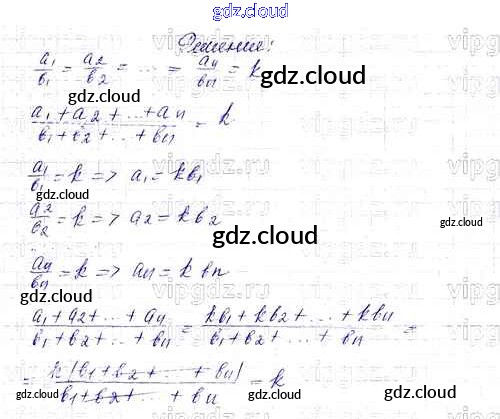 gdz.cloud
Решение:
a₁/b₁ = a₂/b₂ = ... = aₙ/bₙ = k
gdz.cloud
gdz.cloud
(a₁ + a₂ + ... + aₙ)/(b₁ + b₂ + ... + bₙ) = k
gdz.cloud
a₁/b₁ = k => a₁ = kb₁
gdz.cloud
a₂/b₂ = k => a₂ = kb₂
gdz.cloud
..
aₙ/bₙ = k => aₙ = kbₙ
gdz.cloud
gdz.cloud
(a₁ + a₂ + ... + aₙ)/(b₁ + b₂ + ... + bₙ) = (kb₁ + kb₂ + ... + kbₙ)/(b₁ + b₂ + ... + bₙ) =
gdz.cloud
= k(b₁ + b₂ + ... + bₙ)/(b₁ + b₂ + ... + bₙ) = k
gdz.cloud
gdz.cloud